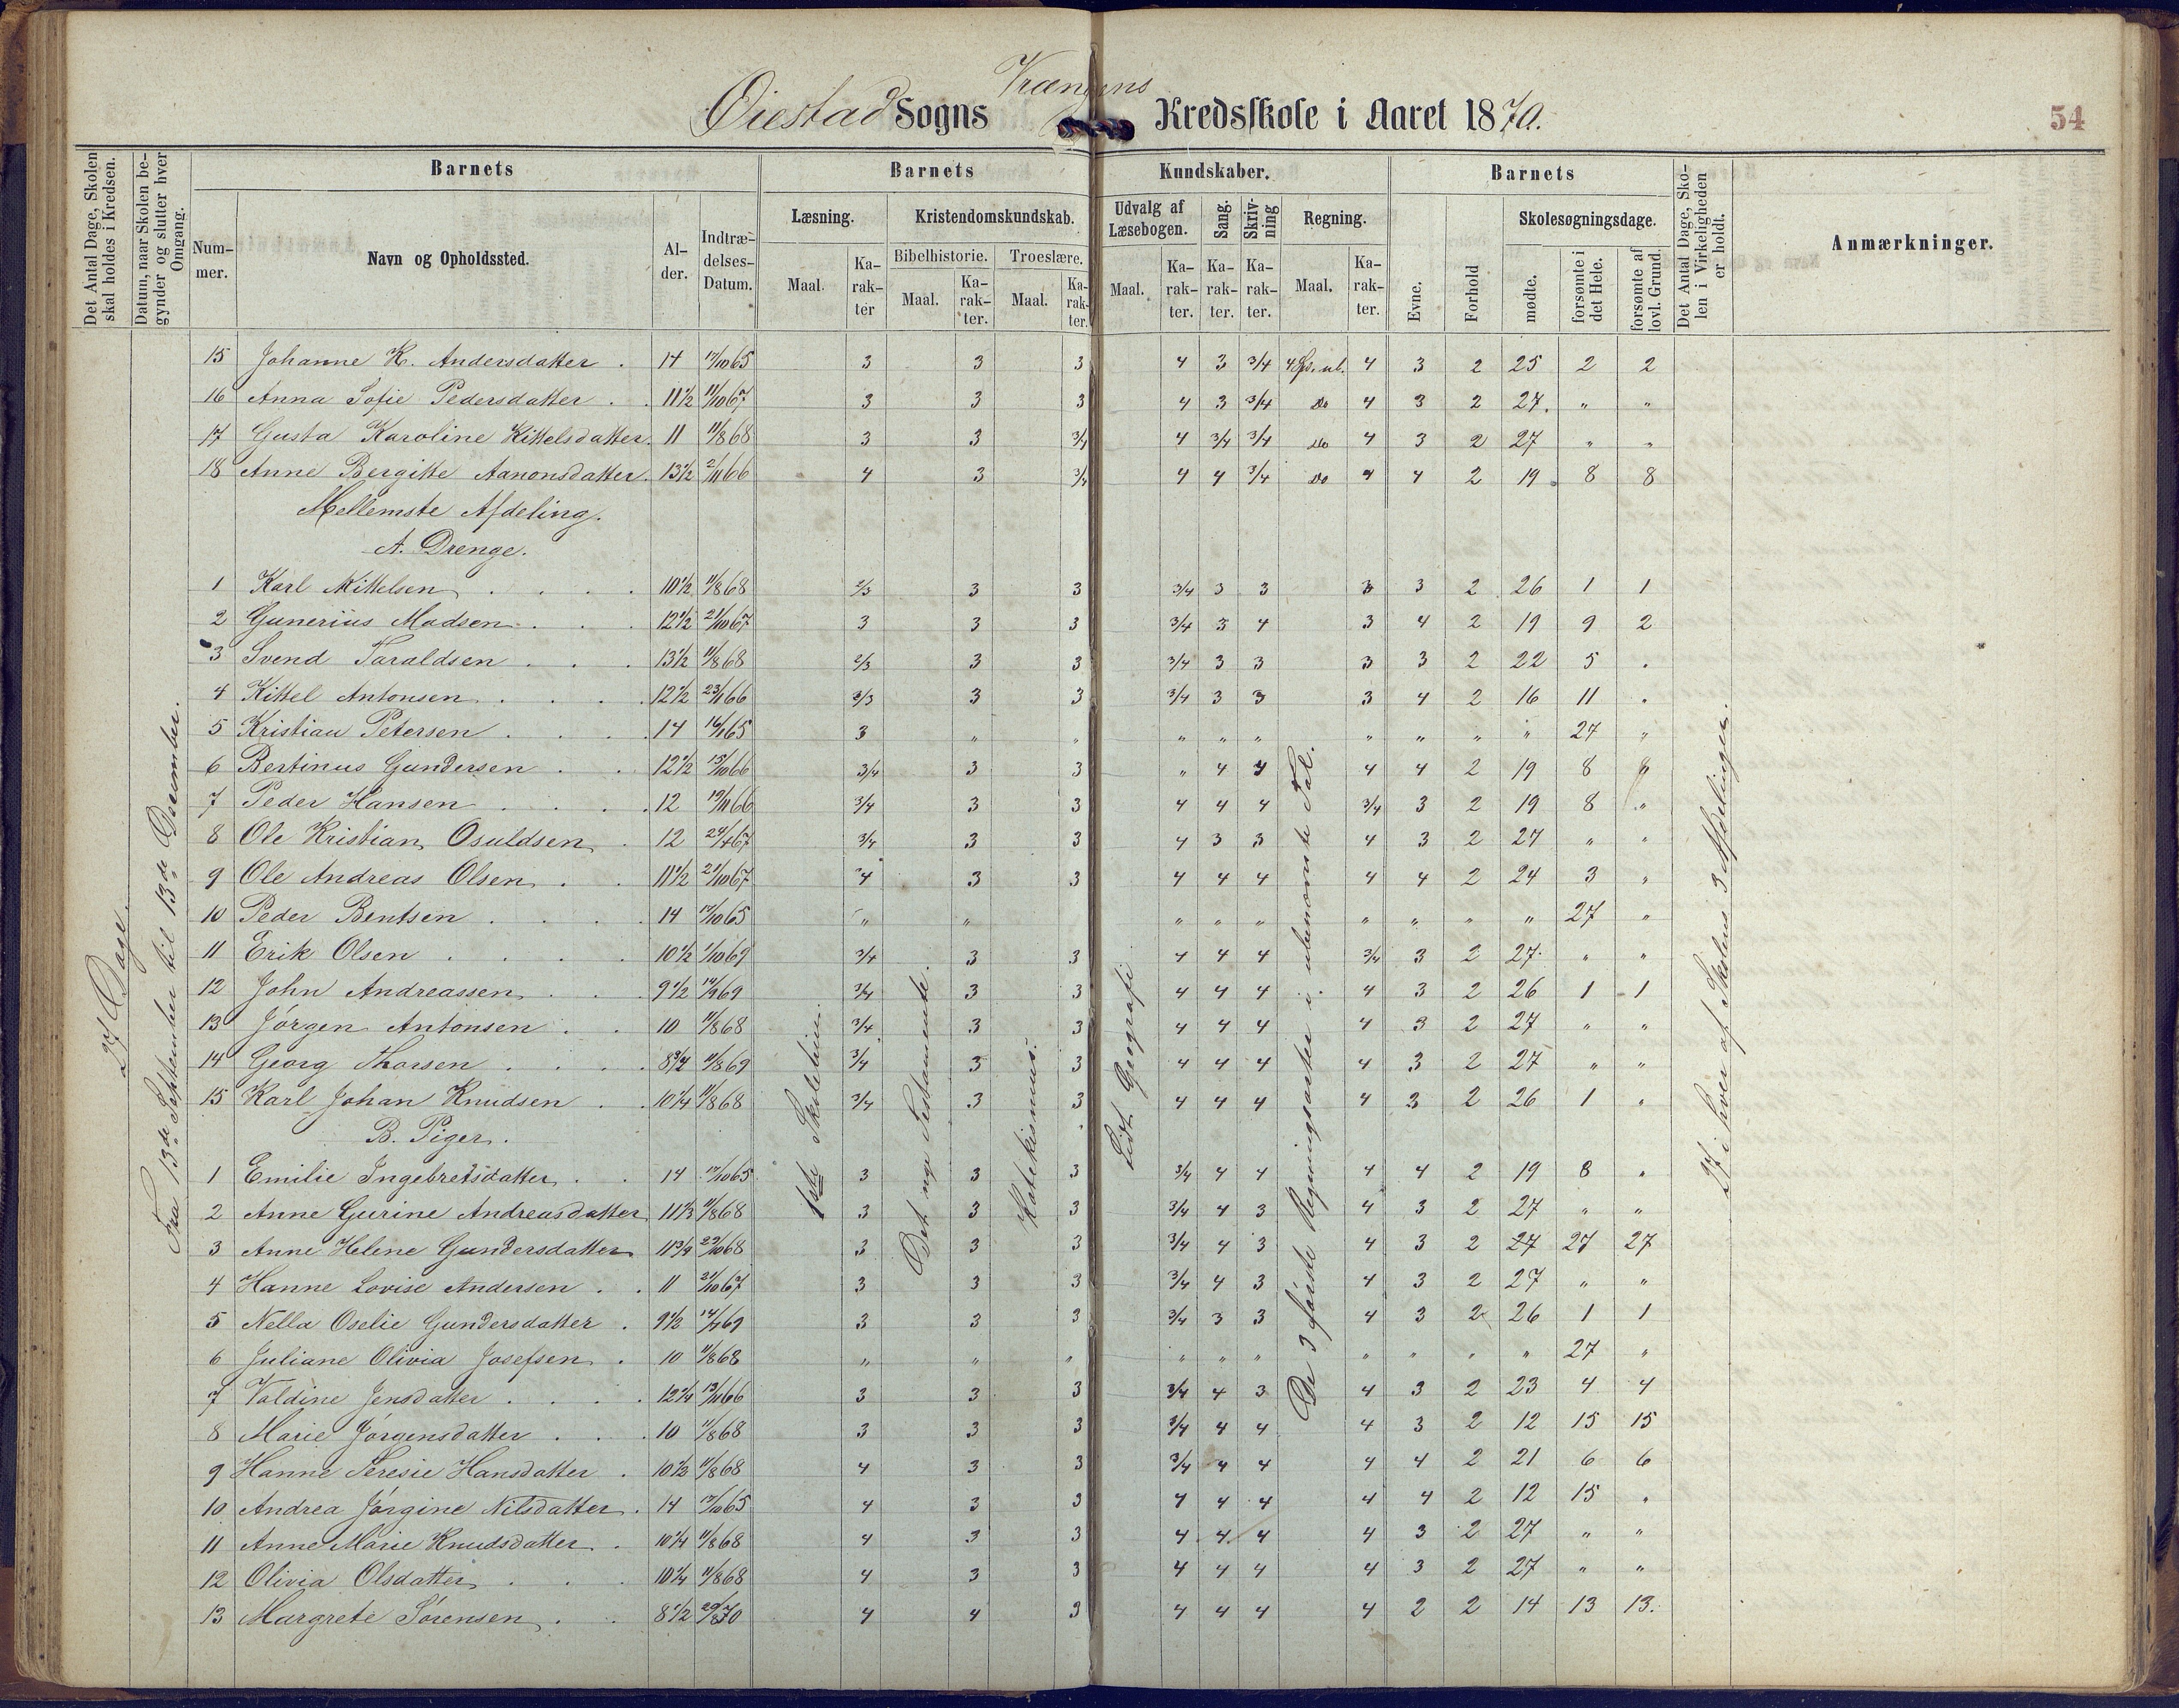 Vrængens
Øiestad Sogns Kredsskole i Aaret 1870.
54
Det Antal Dage, Skolen skal holdes i Kredsen.
Datum, naar Skolen begynder og slutter hver Omgang.
Barnets
Barnets Kundskaber.
Barnets
Det Antal Dage, Skolen i Virkeligheden er holdt.
Anmærkninger.
Nummer.
Navn og Opholdssted.
Alder.
Indtrædelses-Datum.
Læsning.
Kristendomskundskab.
Udvalg af Læsebogen.
Sang.
Skrivning
Regning.
Evne.
Forhold
Skolesøgningsdage.
Bibelhistorie.
Troeslære.
Maal.
Karakter
Maal.
Karakter.
Maal.
Karakter.
Maal.
Karakter.
Karakter.
Karakter.
Maal.
Karakter.
mødte.
forsømte i det Hele.
forsømte af lovl. Grund.
27 Dage.
Fra 13de September til 13de December.
1ste Skoletrin.
Det nye Testamente.
Katekismus.
Lidt Geografi
De 3 første Regningsarter i ubenævnte Tal.
27 i hver af Skolens 3 Afdelinger.
15 Johanne K. Andersdatter . 14 17/10 65 3 3 3 4 3 3/4 4 Sp. ub. 4 3 2 25 2 2
16 Anna Sofie Pedersdatter . . 11 1/2 11/10 67 3 3 3 4 3 3/4 Do 4 3 2 27. " "
17 Gusta Karoline Kittelsdatter. 11 11/8 68 3 3 3/4 4 3/4 3/4 Do 4 3 2 27 " "
18 Anne Bergitte Aanonsdatter. 13 1/2 2/11 66 4 3 3/4 4 4 3/4 Do 4 4 2 19 8 8
Mellemste Afdeling.
A. Drenge.
1 Karl Kittelsen . . . . 10 1/2 11/8 68 2/3 3 3 3/4 3 3 3 3 2 26 1 1
2 Gunerius Madsen . . . 12 1/2 21/10 67 3 3 3 3/4 3 4 3 4 2 19 9 2
3 Svend Taraldsen . . . 13 1/2 11/8 68 2/3 3 3 3/4 3 3 3 3 2 22 5 "
4 Kittel Antonsen . . . . 12 1/2 23/1 66 2/3 3 3 3/4 3 3 3 4 2 16 11 "
5 Kristian Petersen . . . . 14 16/1 65 3 " " " " " " " " " 27 "
6 Bertinus Gundersen . . 12 1/2 15/10 66 3/4 3 3 " 4 4 4 4 2 19 8 8
7 Peder Hansen . . . . 12 19/11 66 3/4 3 3 4 4 4 3/4 3 2 19 8 "
8 Ole Kristian Osuldsen . 12 24/4 67 3/4 3 3 4 3 3 4 3 2 27 " "
9 Ole Andreas Olsen . . 11 1/2 21/10 67 4 3 3 4 4 4 4 4 2 24 3 "
10 Peder Bentsen . . . . 14 17/10 65 " " " " " " " " " 27 "
11 Erik Olsen . . . . . 10 1/2 1/10 69 3/4 3 3 4 4 4 3/4 3 2 27. " "
12 John Andreassen . . . 9 1/2 14/9 69 3/4 3 3 4 4 4 4 3 2 26 1 1
13 Jørgen Antonsen . . 10 11/8 68 3/4 3 3 4 4 4 4 3 2 27 " "
14 Georg Thorsen . . . . 8 3/4 11/8 69 3/4 3 3 4 4 4 4 3 2 27 " "
15 Karl Johan Knudsen . . 10 1/4 11/8 68 3/4 3 3 4 4 4 4 3 2 26 1 "
B. Piger.
1 Emilie Ingebretsdatter . . 14 17/10 65 3 3 3 3/4 4 4 4 4 2 19 8 "
2 Anne Gurine Andreasdatter 11 1/2 11/8 68 3 3 3 3/4 4 3 4 3 2 27 " "
3 Anne Helene Gundersdatter 11 3/4 29/10 68 3 3 3 3/4 4 3 4 3 2 27 27 27
4 Hanne Lovise Andersen . . 11 21/10 67 3 3 3 3/4 4 3 4 3 2 27 " "
5 Nella Oselie Gundersdatter . 9 1/2 14/9 69 3 3 3 3/4 3 3 4 3 2 26 1 1
6 Juliane Olivia Josefsen . 10 11/8 68 " " " " " " " " " " 27 "
7 Valdine Jensdatter . . . . 12 1/4 13/11 66 3 3 3 3/4 4 3 4 3 2 23 4 4
8 Marie Jørgensdatter . . . 10 11/8 68 3 3 3 3/4 4 4 4 3 2 12 15 15
9 Hanne Teresie Hansdatter . 10 1/2 11/8 68 4 3 3 3/4 4 4 4 4 2 21 6 6
10 Andrea Jørgine Nilsdatter . 14 17/10 65 4 3 3 4 4 4 4 4 2 12 15 "
11 Anne Marie Knudsdatter . 10 1/4 11/8 68 4 3 3 4 4 4 4 3 2 27 " "
12 Olivia Olsdatter . . . 10 1/4 11/8 68 4 3 3 4 4 4 4 3 2 27 " "
13 Margrete Sørensen . . 8 1/2 29/8 70 4 4 3 4 4 4 4 2 2 14 13 13.